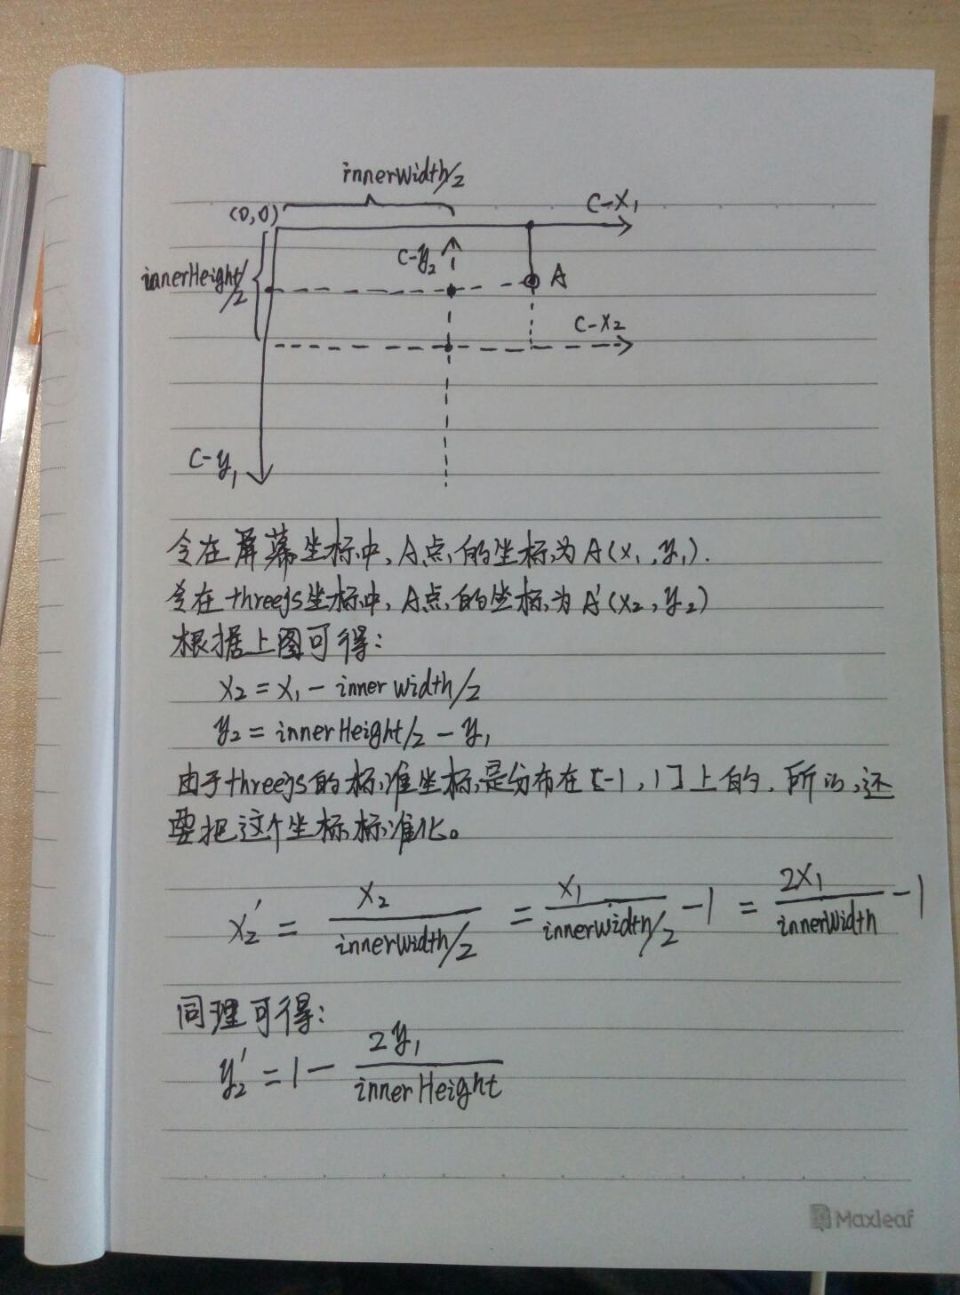 innerWidth/2
(0,0)
C-x₁
C-y₂
innerHeight/2
A
C-x₂
C-y₁
令在屏幕坐标中，A点的坐标为A(x₁,y₁).
令在threejs坐标中，A点的坐标为A'(x₂,y₂)
根据上图可得：
x₂ = x₁ - innerWidth/2
y₂ = innerHeight/2 - y₁
由于threejs的标准坐标是分布在[-1,1]上的，所以，还
要把这个坐标标准化。
x₂' = x₂/(innerWidth/2) = x₁/(innerWidth/2) - 1 = 2x₁/innerWidth - 1
同理可得：
y₂' = 1 - 2y₁/innerHeight
Maxleaf